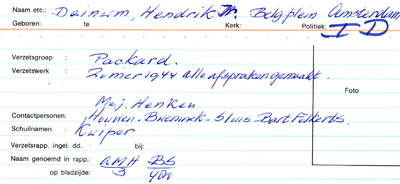 Naam etc.: Deinum, Hendrik Jr. Belgiplein Amsterdam
Geboren: te Kerk: Politiek: I D
Verzetsgroep : Packard.
Verzetswerk : Zomer 1944 alle afspraken gemaakt.
Foto
Mej. Henken
Contactpersonen: Houwen-Brieninck-Sluis Bart Folkerts.
Schuilnamen : Kuiper
Verzetsrapp. ingel. dd. : bij:
Naam genoemd in rapp.: AMH BS
op bladzijde: 3 400